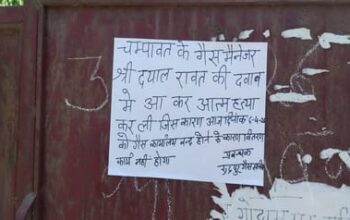 चम्पावत के गैस मैनेजर
श्री दयाल रावत की दवाब
मे आ कर आत्म हत्या
कर ली जिस कारण आज दिनांक
को गैस कार्यालय बन्द होने के कारण वितरण
कार्य नहीं होगा
प्रबन्धक
3